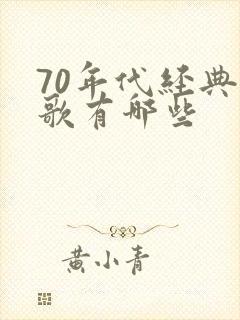 70年代经典
歌有哪些
黄小青